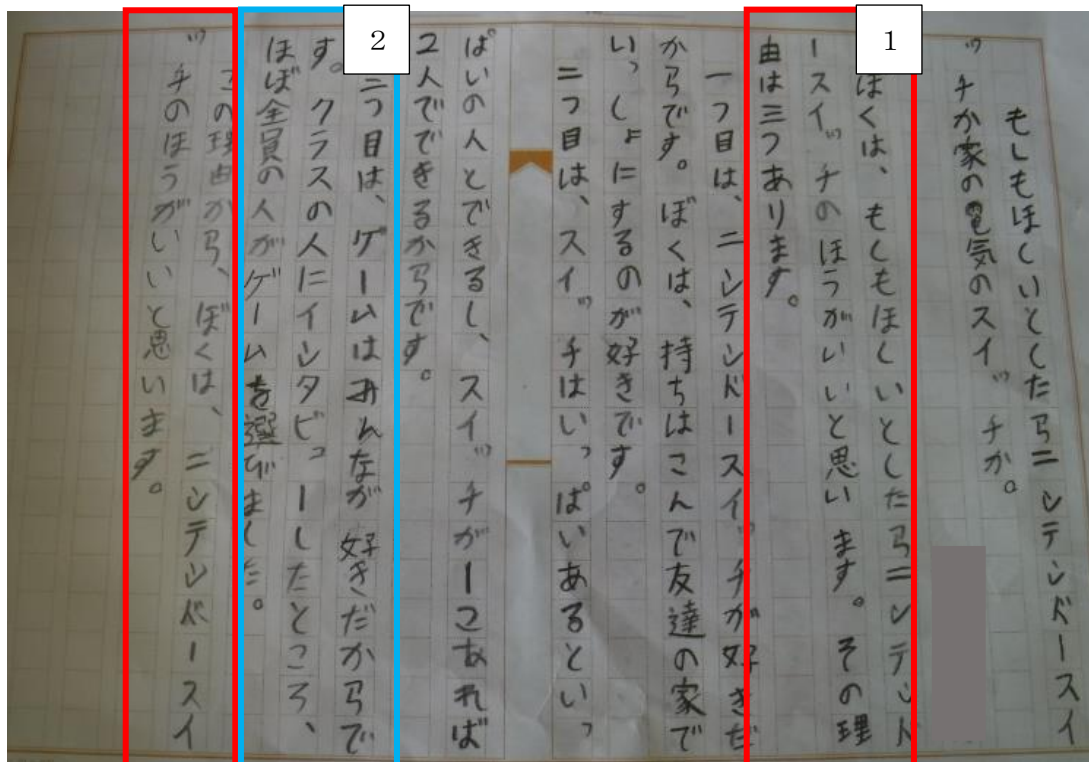 もしもほしいとしたらニンテンドースイ
ッチか家の電気のスイッチか。
ぼくは、もしもほしいとしたらニンテンド
ースイッチのほうがいいと思います。その理
由は三つあります。
一つ目は、ニンテンドースイッチが好きだ
からです。ぼくは、持ちはこんで友達の家で
いっしょにするのが好きです。
二つ目は、スイッチはいっぱいあるといっ
ぱいの人とできるし、スイッチが一こあれば
2人でできるからです。
三つ目は、ゲームはみんなが好きだからで
す。クラスの人にインタビューしたところ、
ほぼ全員の人がゲームを選びました。
この理由から、ぼくは、ニンテンドースイ
ッチのほうがいいと思います。
1
2